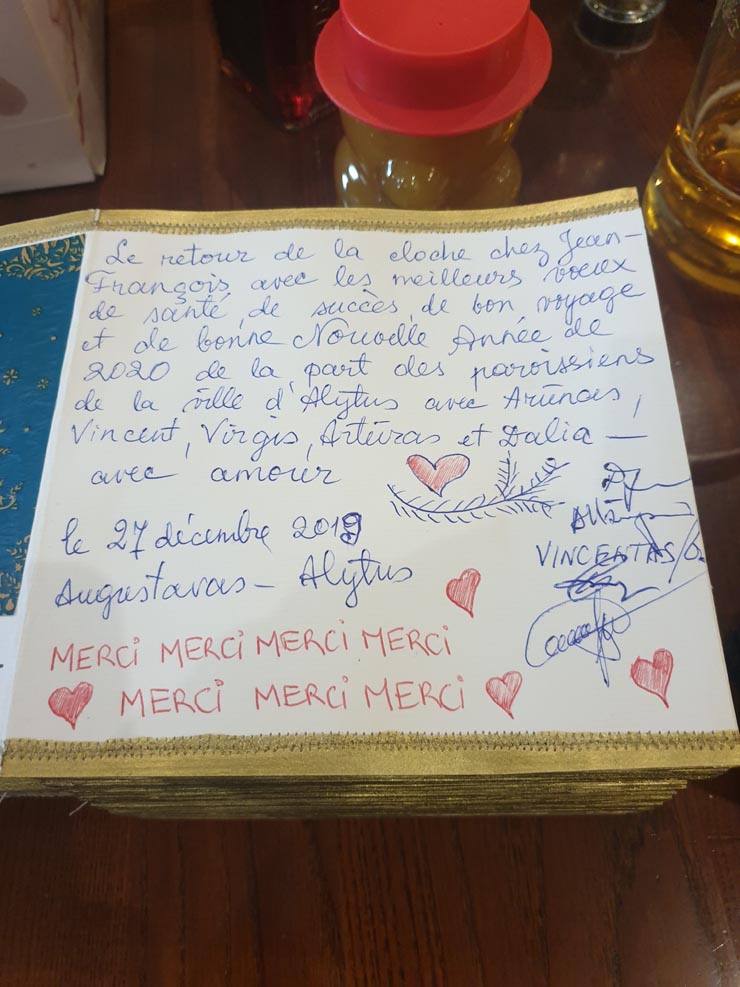 Le retour de la cloche chez Jean-
François avec les meilleurs voeux
de santé, de succès, de bon voyage
et de bonne Nouvelle Année de
2020 de la part des paroissiens
de la ville d'Alytus avec Arūnas,
Vincent, Virgis, Artūras et Dalia —
avec amour
le 27 décembre 2019
Augustavas - Alytus
VINCENTAS
MERCI MERCI MERCI MERCI
MERCI MERCI MERCI